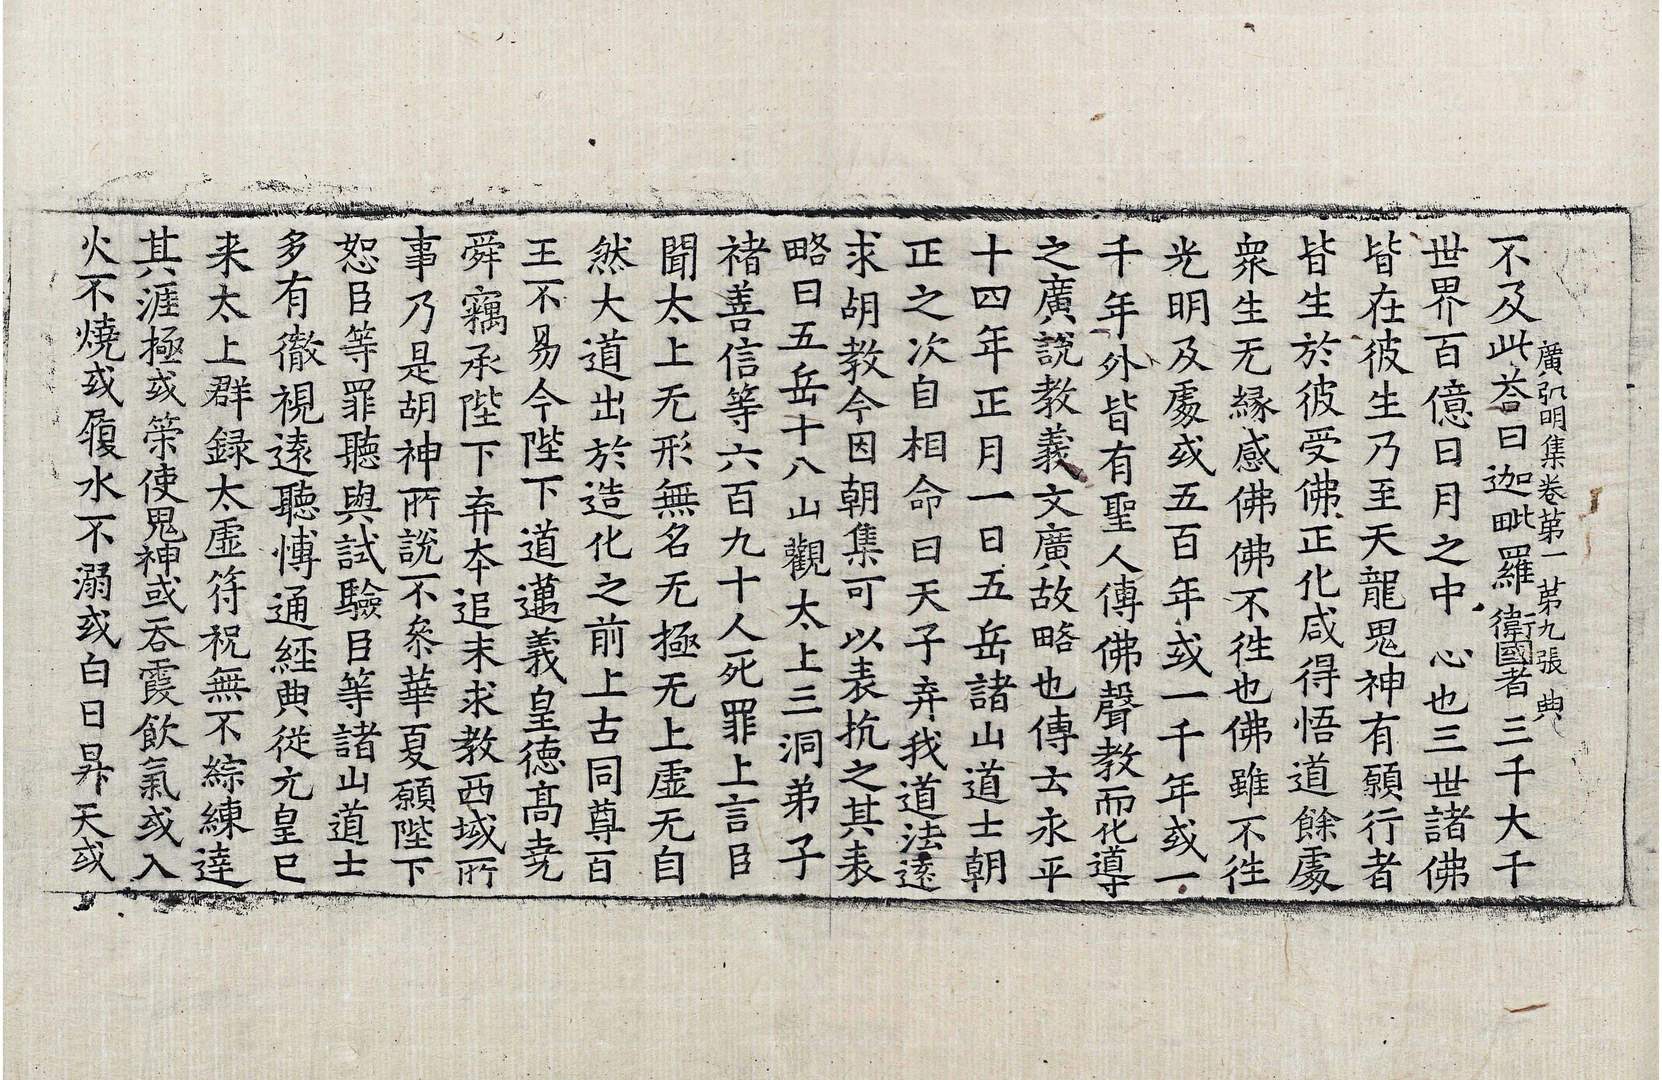 廣弘明集卷第一 第九張 典
不及此荅曰迦毗羅衛國者三千大千
世界百億日月之中心也三世諸佛
皆在彼生乃至天龍鬼神有願行者
皆生於彼受佛正化咸得悟道餘處
衆生无緣感佛佛不徃也佛雖不徃
光明及處或五百年或一千年或一
千年外皆有聖人傳佛聲教而化導
之廣說教義文廣故略也傳云永平
十四年正月一日五岳諸山道士朝
正之次自相命曰天子弃我道法遠
求胡教今因朝集可以表抗之其表
略曰五岳十八山觀太上三洞弟子
禇善信等六百九十人死罪上言臣
聞太上无形無名无極无上虛无自
然大道出於造化之前上古同尊百
王不易今陛下道邁義皇德高尭
舜竊承陛下弃本追末求教西域所
事乃是胡神所說不叅華夏願陛下
恕臣等罪聽與試驗臣等諸山道士
多有徹視遠聽愽通經典從元皇已
来太上群録太虛符祝無不綜練達
其涯極或策使鬼神或吞霞飲氣或入
火不燒或履水不溺或白日昇天或